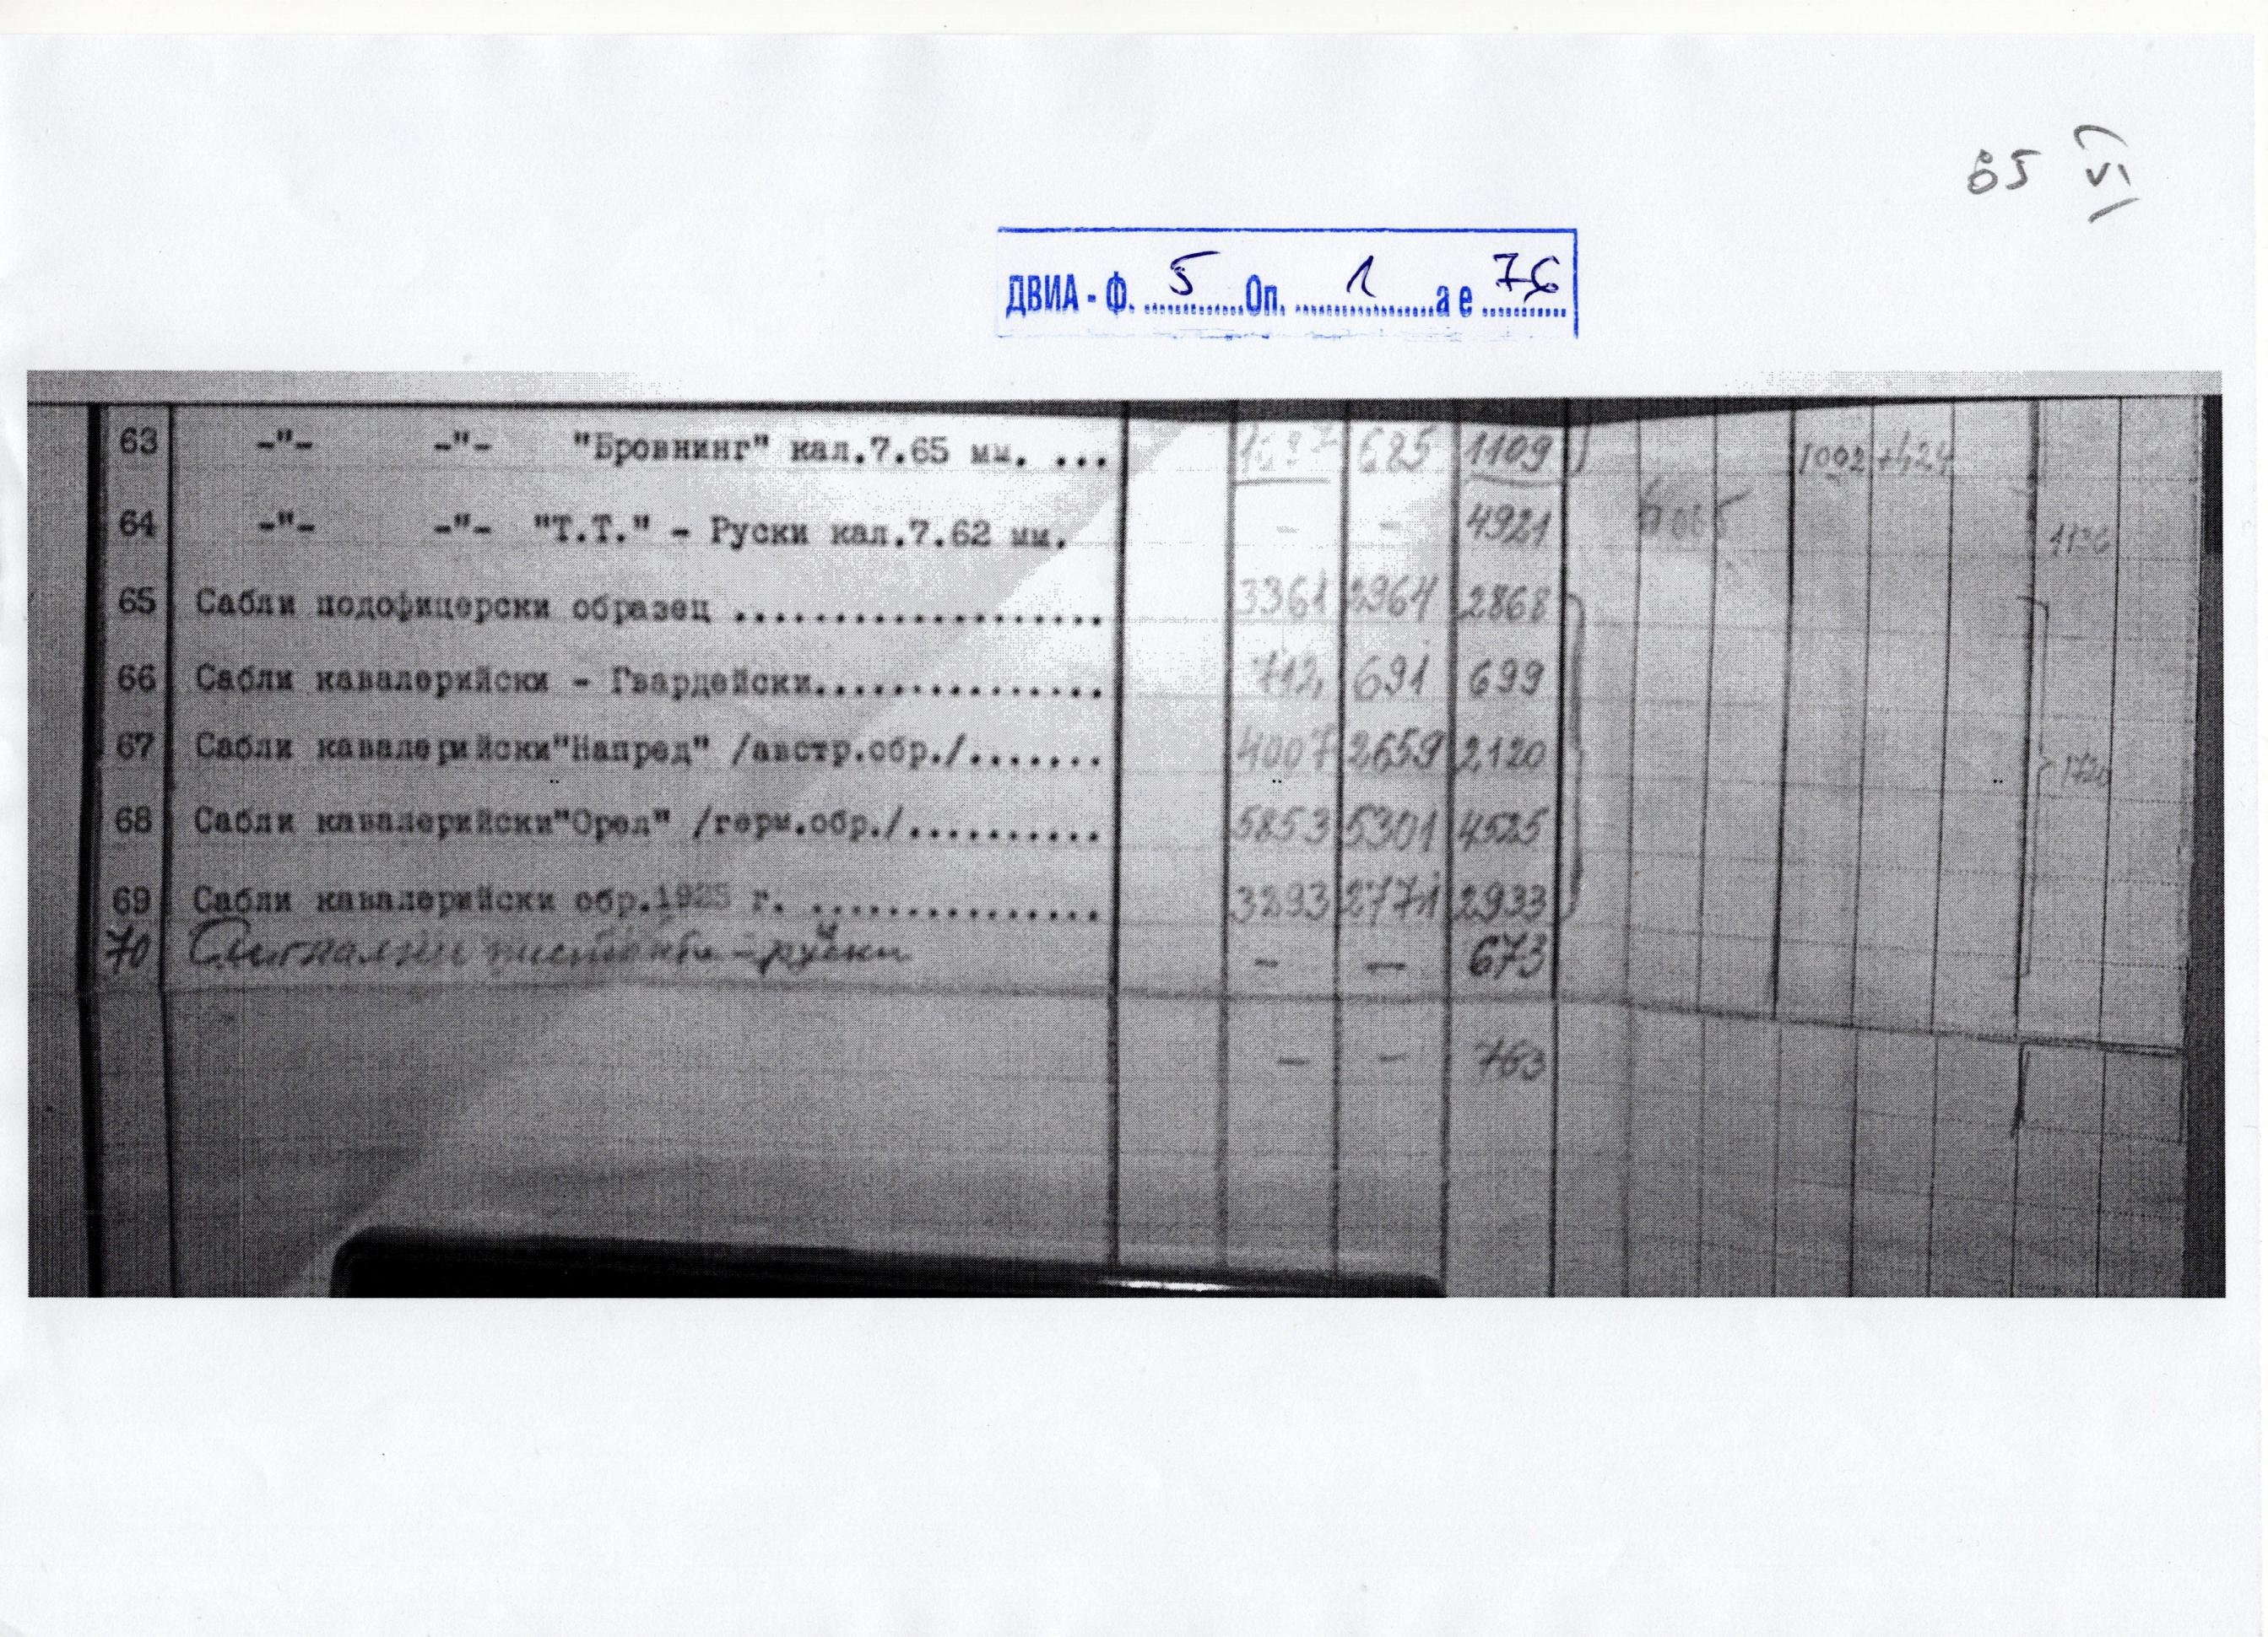 85 VI
ДВИА - Ф. 5 Оп. 1 а е 76
63 -"- -"- "Бровнинг" кал.7.65 мм. ... 685 1109 1002 +424
64 -"- -"- "Т.Т." - Руски кал.7.62 мм. - - 4921
65 Сабли подофицерски образец ................... 3361 2964 2868
66 Сабли кавалерийски - Гвардейски............... 712 691 699
67 Сабли кавалерийски"Напред" /австр.обр./....... 4007 2659 2120
68 Сабли кавалерийски"Орел" /герм.обр./.......... 5853 5301 4525
69 Сабли кавалерийски обр.1925 г. ............... 3293 2771 2933
70 Сигнални пистолети - руски - - 673
- - 763